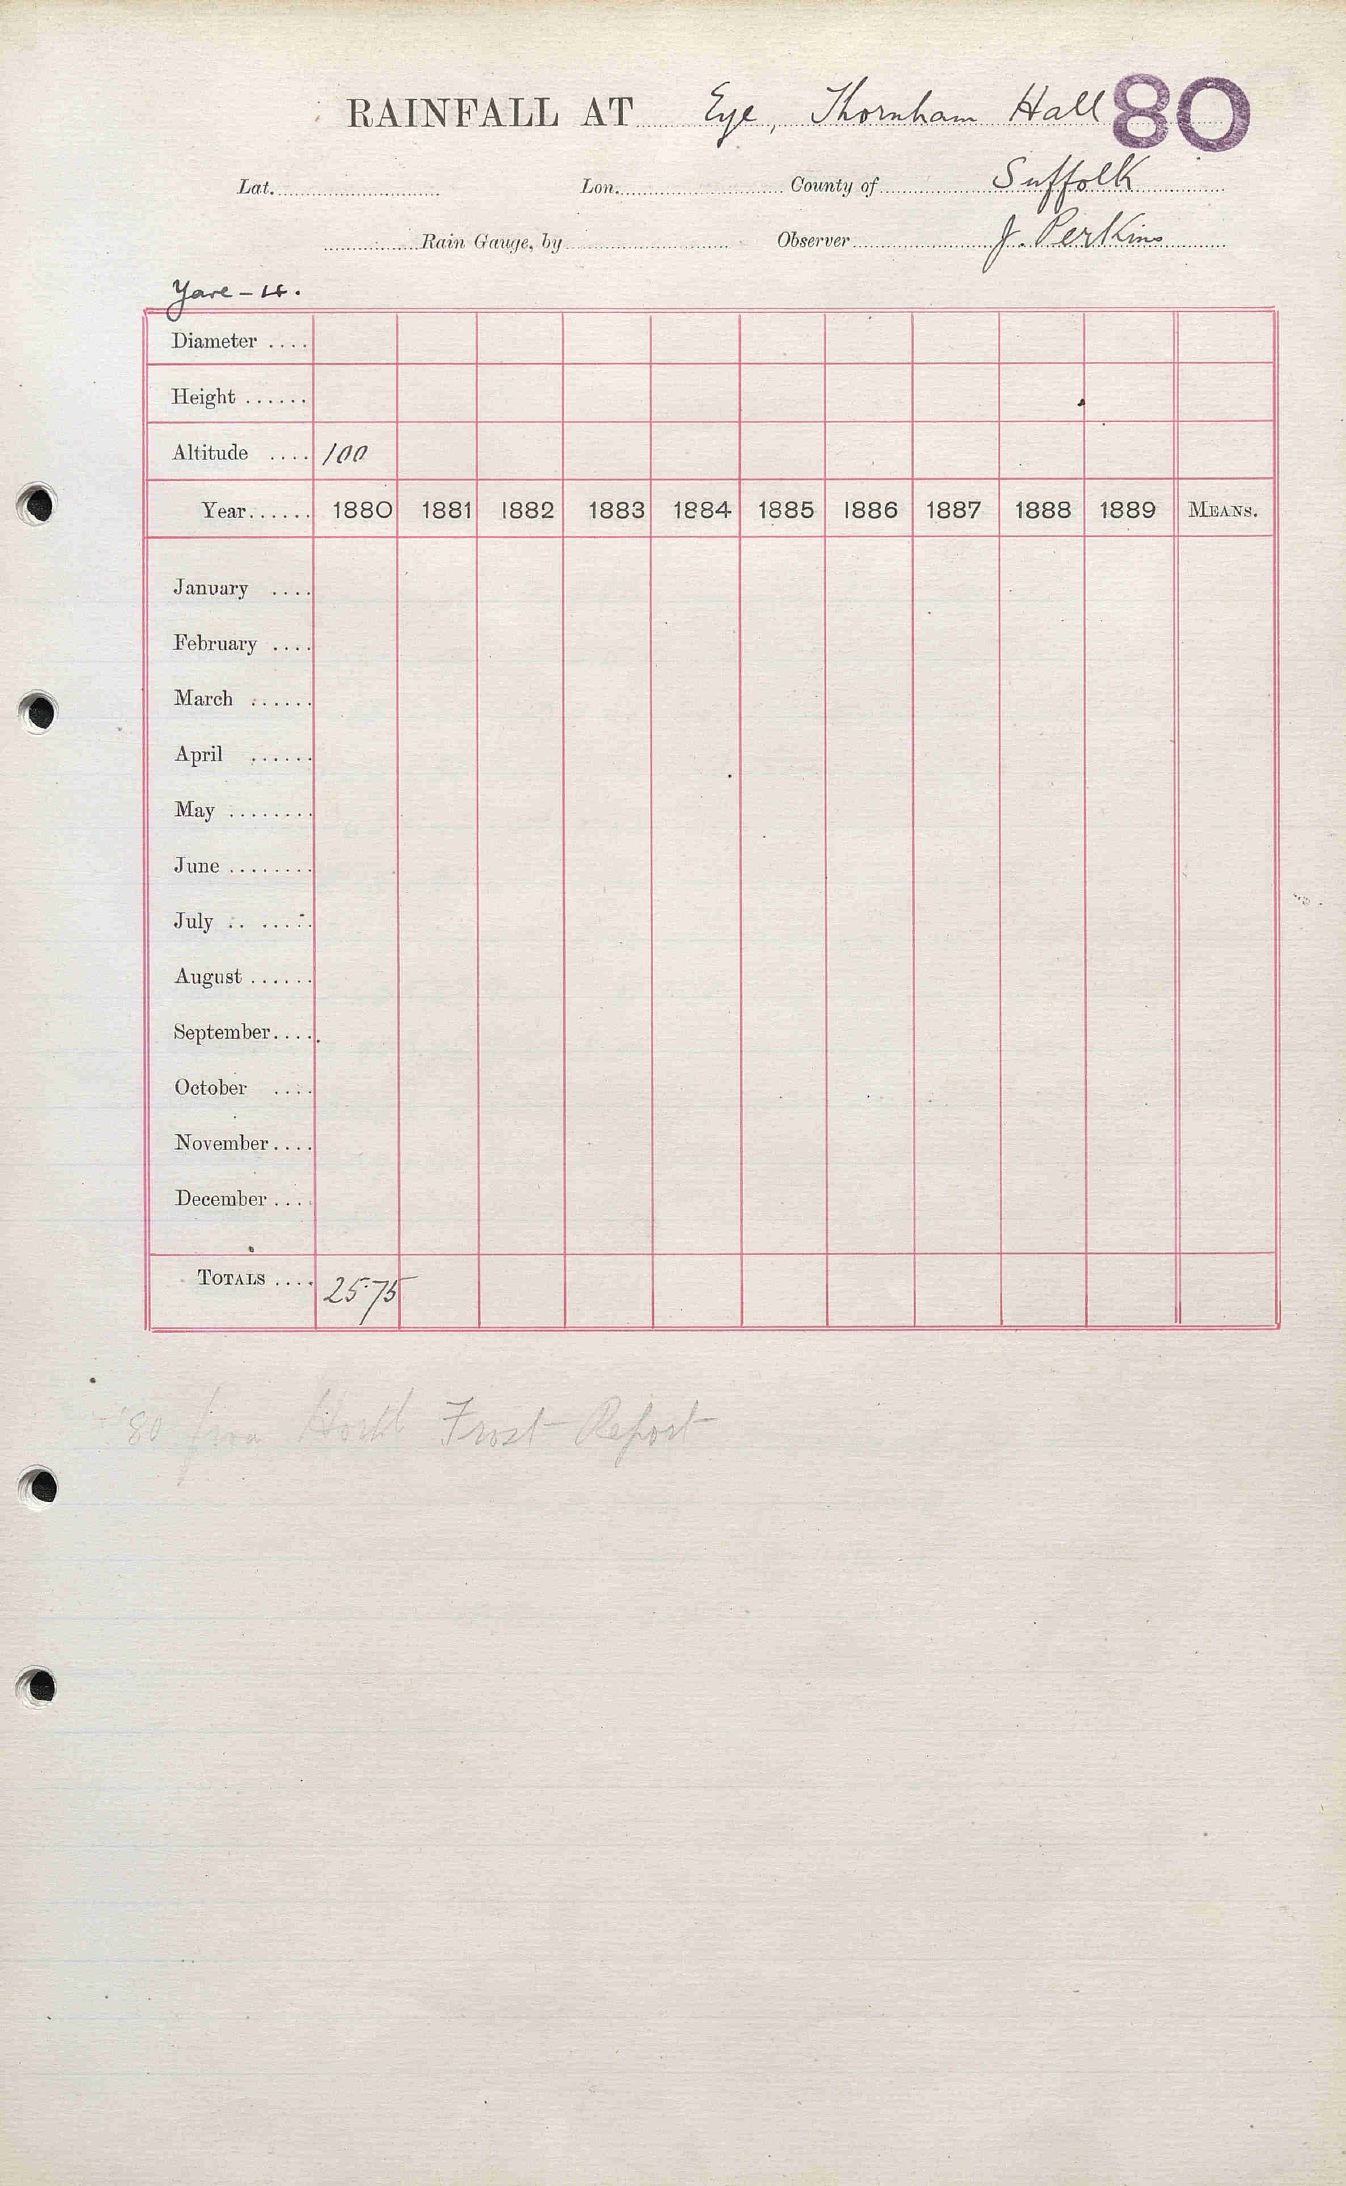 RAINFALL AT Eye, Thornham Hall 80
Lat. Lon. County of Suffolk
Rain Gauge, by Observer J. Perkins
Yare - 14.
Diameter ....
Height ......
Altitude .... 100
Year...... 1880 1881 1882 1883 1884 1885 1886 1887 1888 1889 MEANS.
January ....
February ....
March ......
April ......
May ........
June ........
July .. ......
August ......
September....
October ....
November....
December ....
TOTALS .... 25.75
'80 from Hortl Frost Report